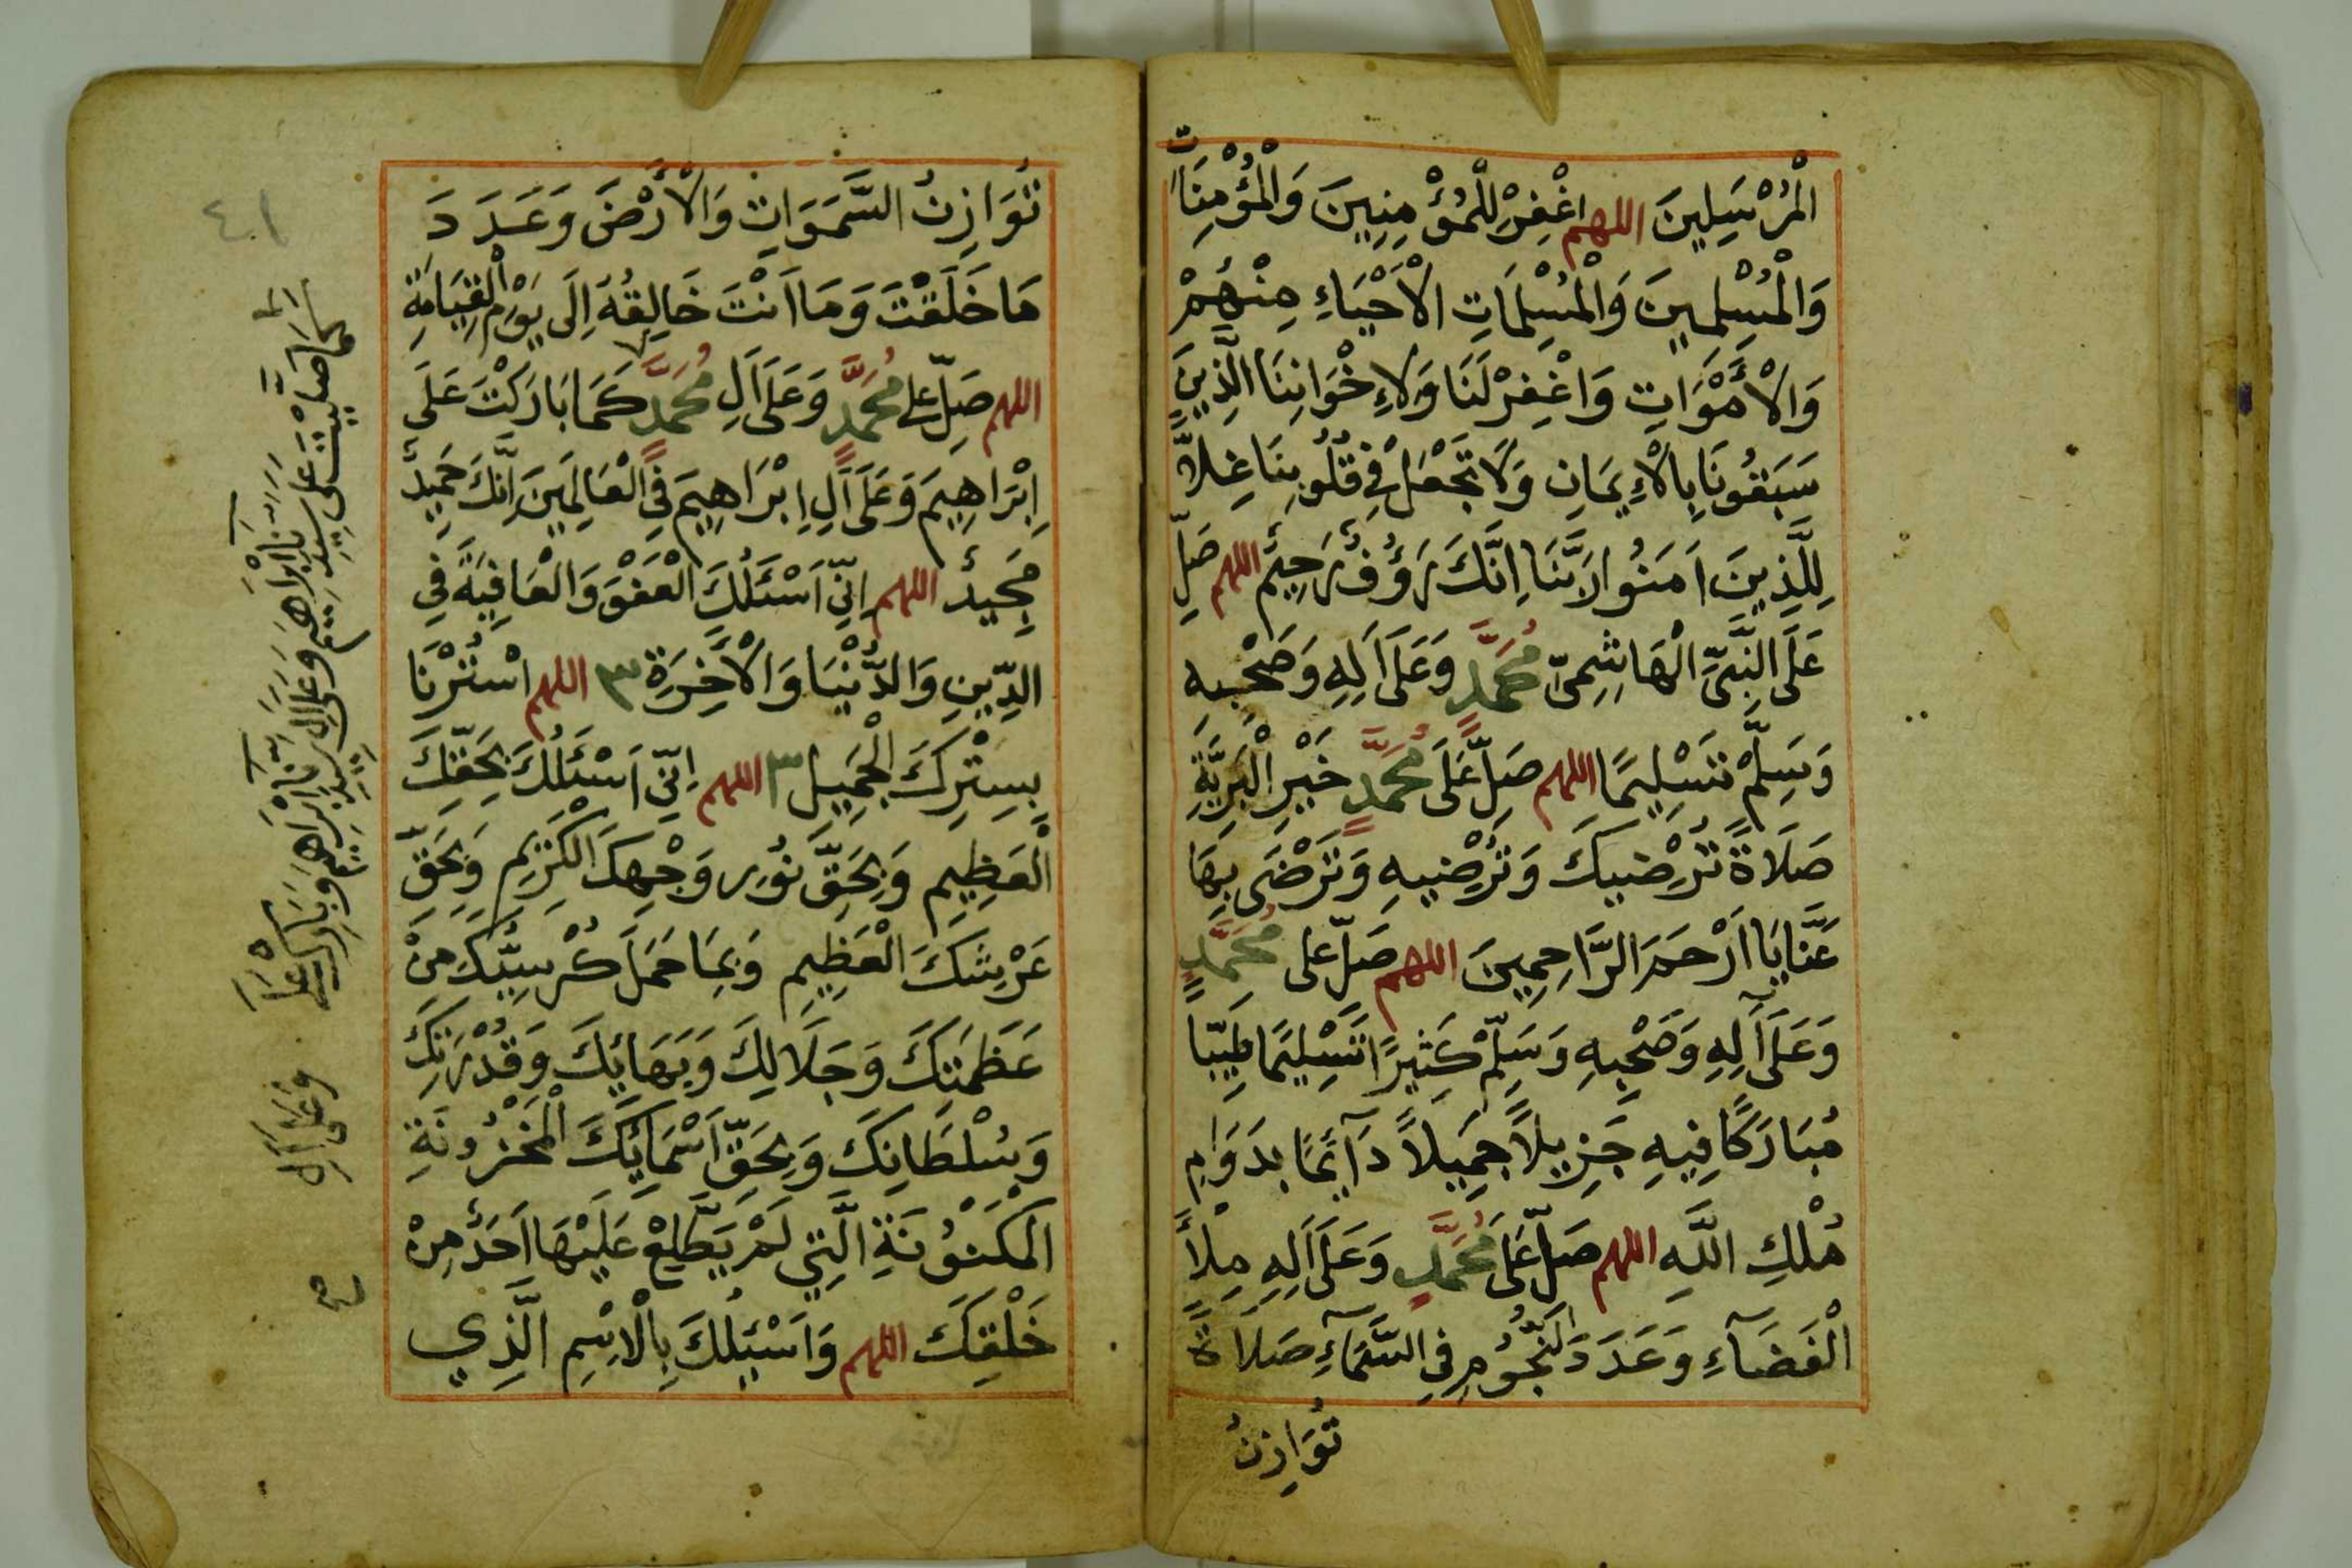 الْمُرْسَلِينَ اللهم اغْفِرْ لِلْمُؤْمِنِينَ وَالْمُؤْمِنَاتِ
وَالْمُسْلِمِينَ وَالْمُسْلِمَاتِ الْأَحْيَاءِ مِنْهُمْ
وَالْأَمْوَاتِ وَاغْفِرْ لَنَا وَلِإِخْوَانِنَا الَّذِينَ
سَبَقُونَا بِالْإِيمَانِ وَلَا تَجْعَلْ فِي قُلُوبِنَا غِلًّا
لِلَّذِينَ اٰمَنُوا رَبَّنَا اِنَّكَ رَؤُفٌ رَحِيمٌ اللهم صَلِّ
عَلَى النَّبِيِّ الْهَاشِمِيِّ مُحَمَّدٍ وَعَلَى اَلِهِ وَصَحْبِهِ
وَسَلِّمْ تَسْلِيمًا اللهم صَلِّ عَلَى مُحَمَّدٍ خَيْرِ الْبَرِيَّةِ
صَلَاةً تُرْضِيكَ وَتُرْضِيهِ وَتَرْضَى بِهَا
عَنَّا يَا اَرْحَمَ الرَّاحِمِينَ اللهم صَلِّ على مُحَمَّدٍ
وَعَلَى آلِهِ وَصَحْبِهِ وَسَلِّمْ كَثِيرًا تَسْلِيمًا طَيِّبًا
مُبَارَكًا فِيهِ جَزِيلًا جَمِيلًا دَآئِمًا بِدَوَامِ
مُلْكِ اللَّهِ اللهم صَلِّ عَلَى مُحَمَّدٍ وَعَلَى اَلِهِ مِلْأَ
الْفَضَآءِ وَعَدَدَ النُّجُومِ فِي السَّمَآءِ صَلَاةً
تُوَازِنُ
٤١
تُوَازِنُ السَّمَوَاتِ وَالْأَرْضَ وَعَدَدَ
مَا خَلَقْتَ وَمَا اَنْتَ خَالِقُهُ اِلَى يَوْمِ الْقِيَامَةِ
اللهم صَلِّ على مُحَمَّدٍ وَعَلَى اَلِ مُحَمَّدٍ كَمَا بَارَكْتَ عَلَى
اِبْرَاهِيمَ وَعَلَى اَلِ اِبْرَاهِيمَ فِي الْعَالَمِينَ اِنَّكَ حَمِيدٌ
مَجِيدٌ اللهم اِنِّي اَسْئَلُكَ الْعَفْوَ وَالْعَافِيَةَ فِي
الدِّينِ وَالدُّنْيَا وَالْأَخِرَةِ ٣ اللهم اسْتُرْنَا
بِسِتْرِكَ الْجَمِيلِ ٣ اللهم اِنِّي اَسْئَلُكَ بِحَقِّكَ
الْعَظِيمِ وَبِحَقِّ نُورِ وَجْهِكَ الْكَرِيمِ وَبِحَقِّ
عَرْشِكَ الْعَظِيمِ وَبِمَا حَمَلَ كُرْسِيُّكَ مِنْ
عَظَمَتِكَ وَجَلَالِكَ وَبَهَائِكَ وَقُدْرَتِكَ
وَسُلْطَانِكَ وَبِحَقِّ اَسْمَائِكَ الْمَخْزُونَةِ
الْمَكْنُونَةِ الَّتِي لَمْ يَطَّلِعْ عَلَيْهَا اَحَدٌ مِنْ
خَلْقِكَ اللهم وَاَسْئَلُكَ بِالْاِسْمِ الَّذِي
كَمَا صَلَّيْتَ عَلَى سَيِّدِنَا اِبْرَاهِيمَ وَعَلَى اَلِ سَيِّدِنَا اِبْرَاهِيمَ وَبَارِكْ عَلَى وَعَلَى اَلِ